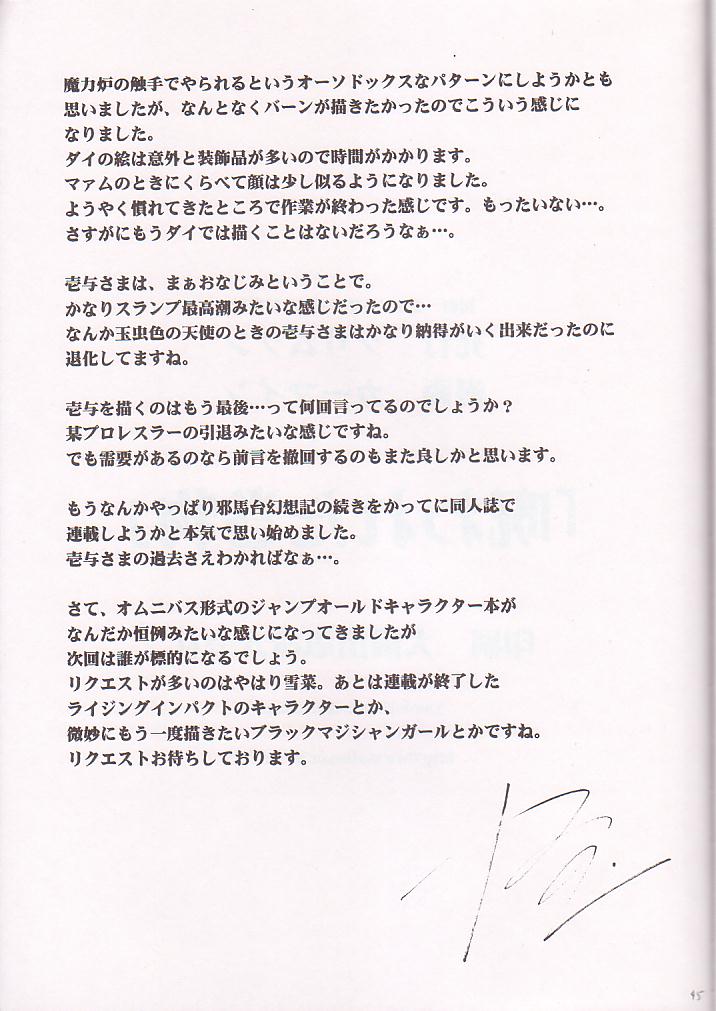 魔力炉の触手でやられるというオーソドックスなパターンにしようかとも
思いましたが、なんとなくバーンが描きたかったのでこういう感じに
なりました。
ダイの絵は意外と装飾品が多いので時間がかかります。
マァムのときにくらべて顔は少し似るようになりました。
ようやく慣れてきたところで作業が終わった感じです。もったいない…。
さすがにもうダイでは描くことはないだろうなぁ…。
壱与さまは、まぁおなじみということで。
かなりスランプ最高潮みたいな感じだったので…
なんか玉虫色の天使のときの壱与さまはかなり納得がいく出来だったのに
退化してますね。
壱与を描くのはもう最後…って何回言ってるのでしょうか？
某プロレスラーの引退みたいな感じですね。
でも需要があるのなら前言を撤回するのもまた良しかと思います。
もうなんかやっぱり邪馬台幻想記の続きをかってに同人誌で
連載しようかと本気で思い始めました。
壱与さまの過去さえわかればなぁ…。
さて、オムニバス形式のジャンプオールドキャラクター本が
なんだか恒例みたいな感じになってきましたが
次回は誰が標的になるでしょう。
リクエストが多いのはやはり雪菜。あとは連載が終了した
ライジングインパクトのキャラクターとか、
微妙にもう一度描きたいブラックマジシャンガールとかですね。
リクエストお待ちしております。
45